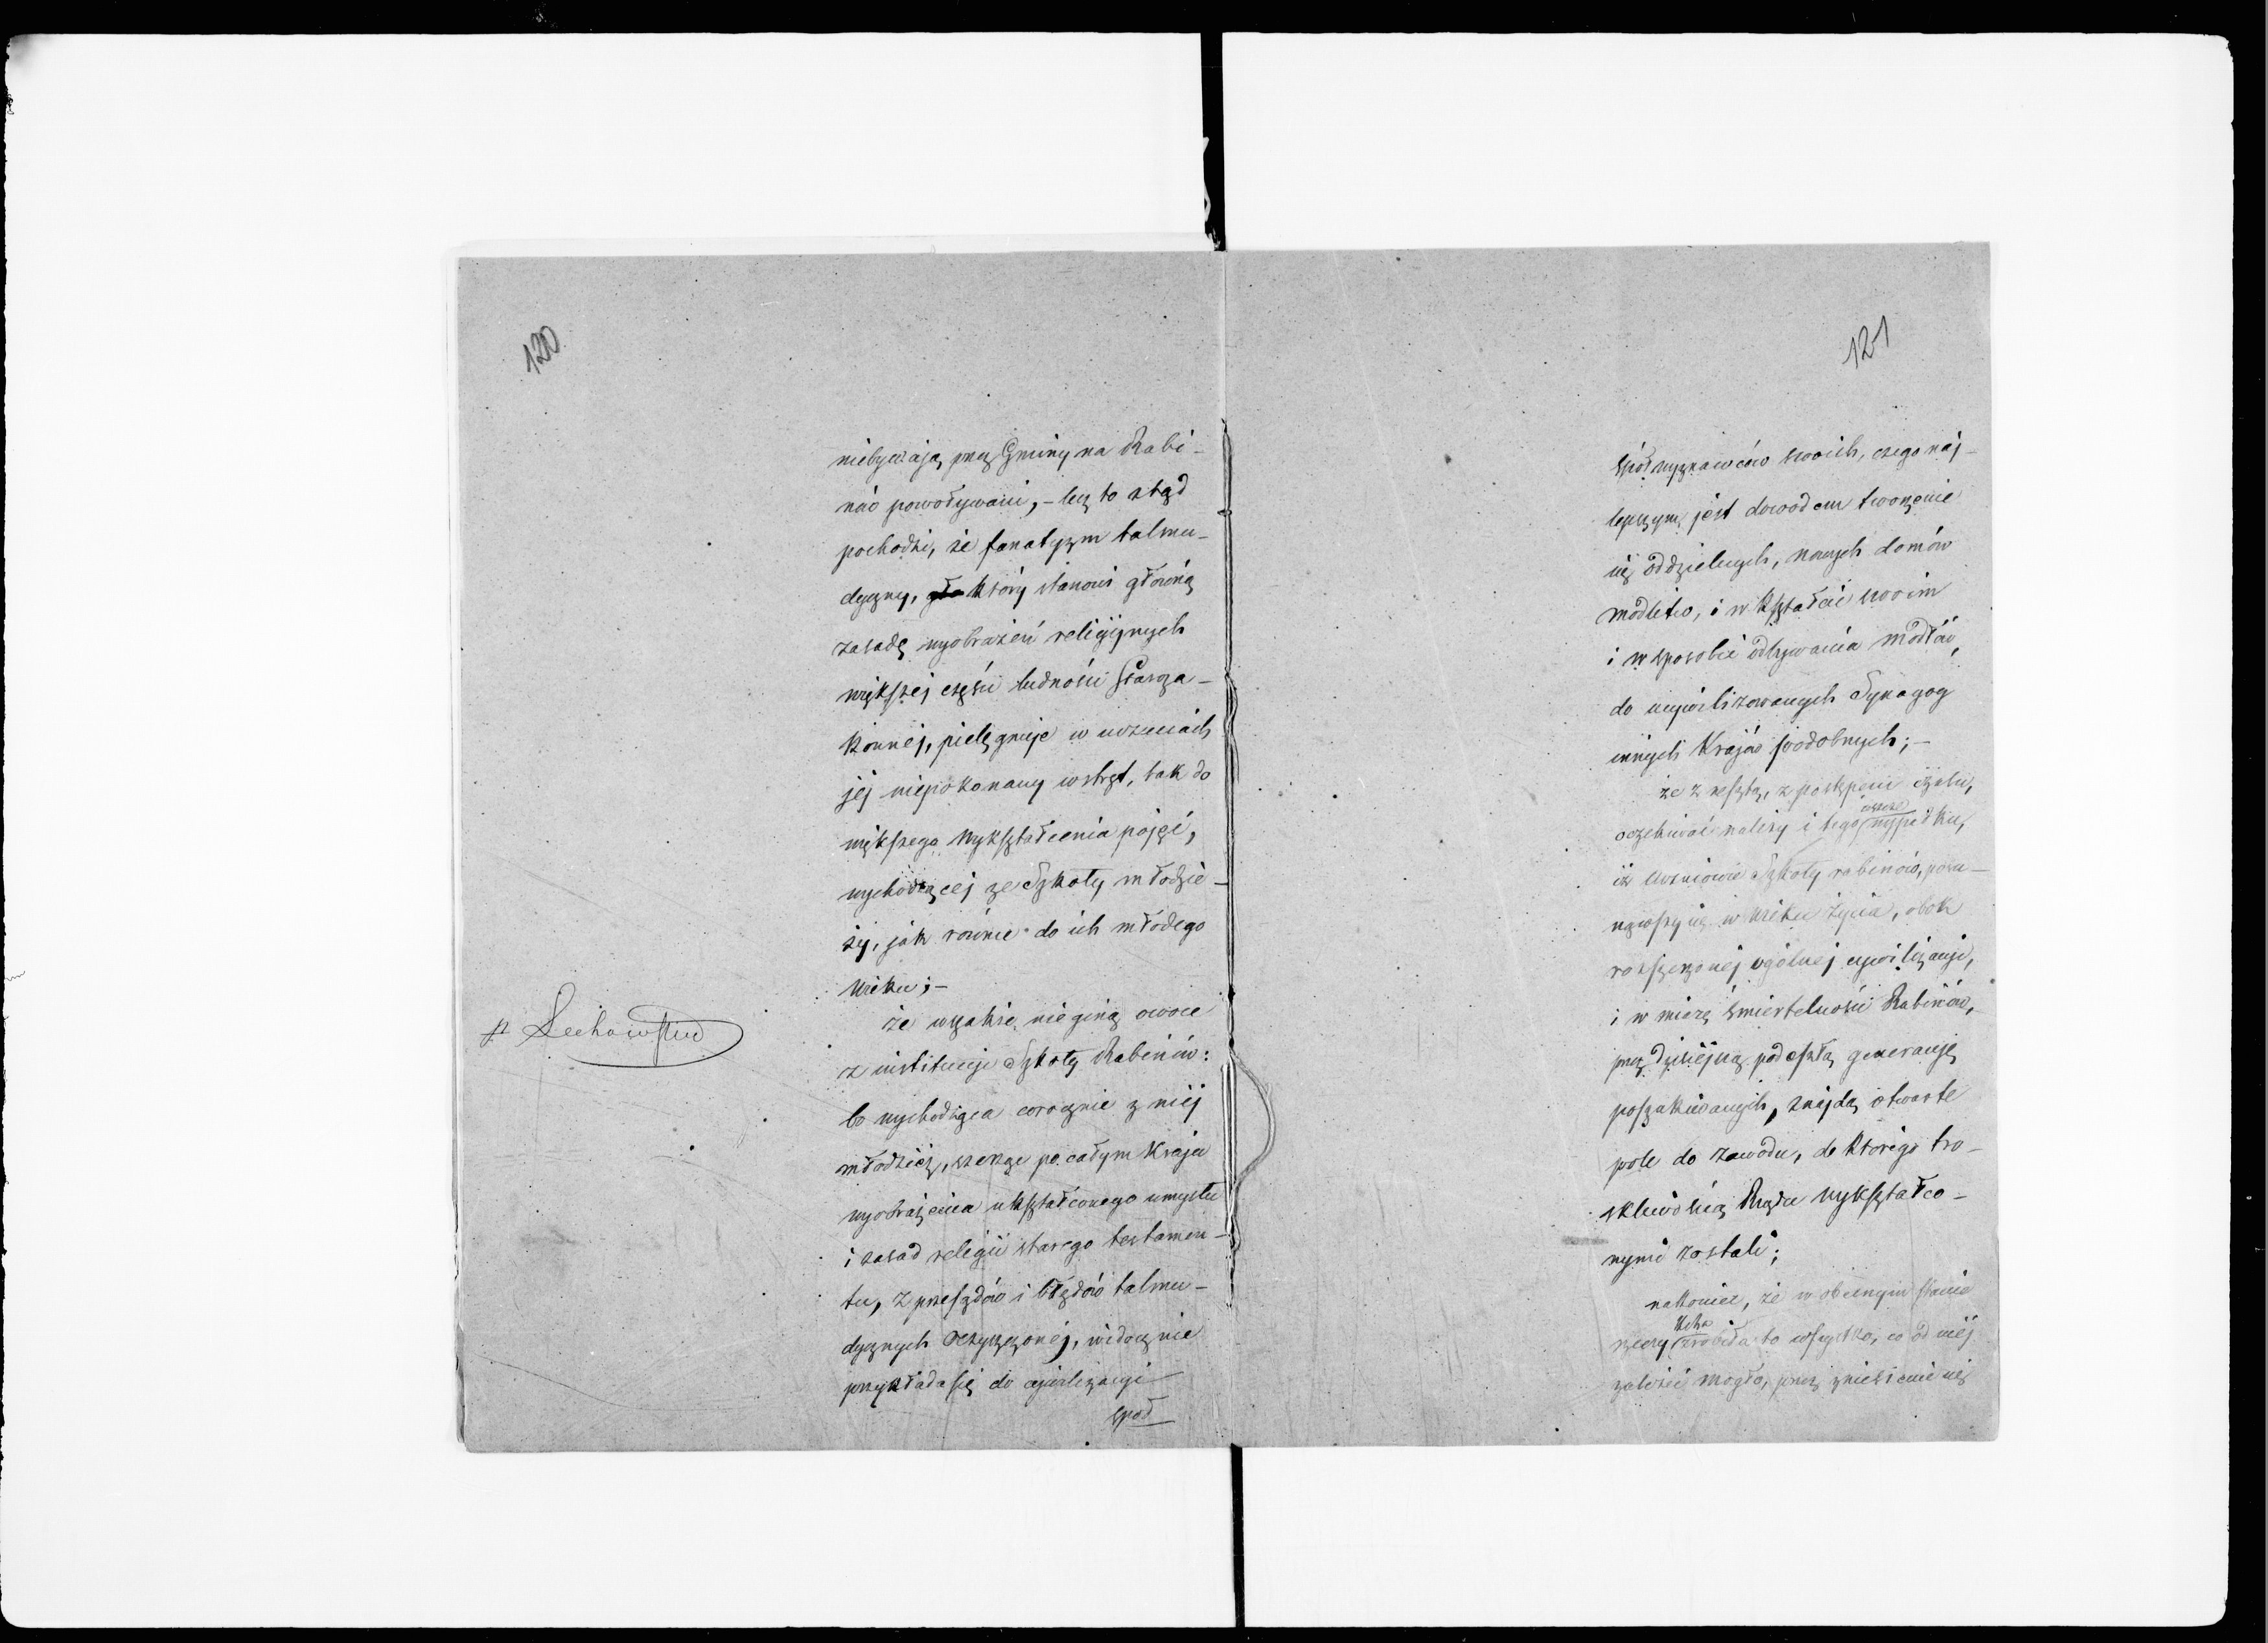 120
niebywają przez Gminy na Rabi-
nów powoływani, - lecz to ztąd
pochodzi, że fanatyzm talmu-
dyczny, który stanowi główną
zasadę wyobrażeń religijnych
większej części ludności Staroza-
konnéj, pielęgnuje w uczuciach
jéj niepokonany wstręt, tak do
większego wykształcenia pojęć,
wychodzącej ze Szkoły młodzie-
ży, jak równie do ich młodego
wieku; -
że wszakże nie giną owoce
z instytucji Szkoły Rabinów:
bo wychodząca corocznie z niéj
młodzież, szerząc po całym Kraju
wyobrażenia ukształconego umysłu
i zasad religii starego testamen-
tu, z przesądów i błędów talmu-
dycznych oczyszczonéj, widocznie
przykłada się do cywilizacyi
spół
121
spółwyznawców swoich, czego naj-
lepszym jest dowodem tworzenie
się oddzielnych, nowych domów
modlitw, i w kształcie swoim
i w sposobie odbywania modłów,
do ucywilizowanych Synagog
innych Krajów podobnych; -
że z resztą, z postępem czasu,
oczekiwać należy i tego wypadku,
iż uczniowie Szkoły rabinów, posu-
nąwszy się w wieku życia, obok
rozszerzonéj ogólnéj cywilizacyi,
i w miarę śmiertelności Rabinów,
przez dzisiejszą podeszłą generacyę
poszukiwanych, znajdą otwarte
pole do zawodu, do którego tro-
skliwością Rządu wykształco-
nymi zostali;
nakoniec, że w obecnym stanie
rzeczy zrobiła to wszystko, co od niéj
zależeć mogło, przez zniesienie się